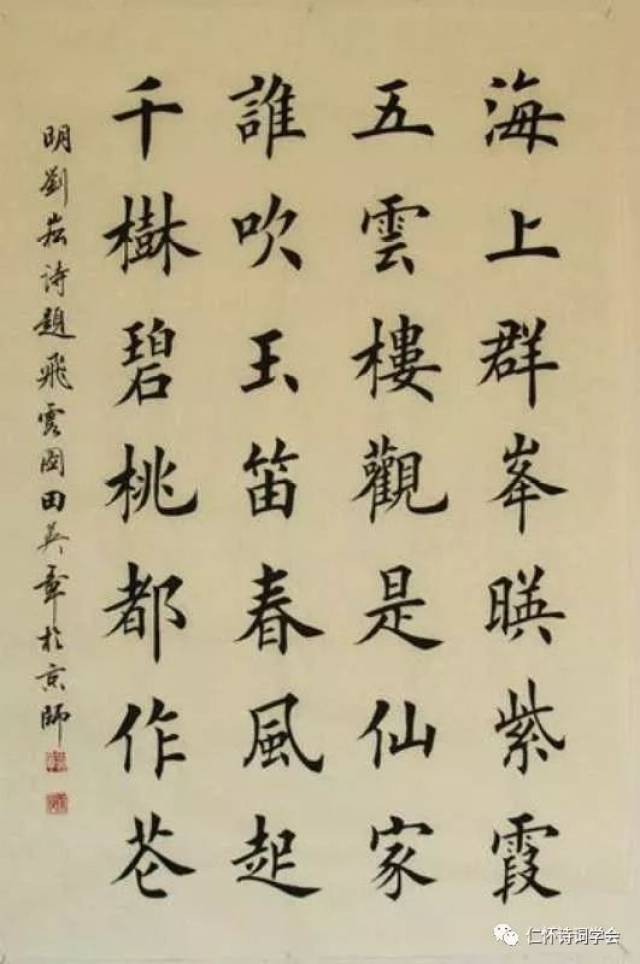 海上群峯暎紫霞
五雲樓觀是仙家
誰吹玉笛春風起
千樹碧桃都作花
明劉崧诗題飛圖田英章於京師
仁怀诗词学会